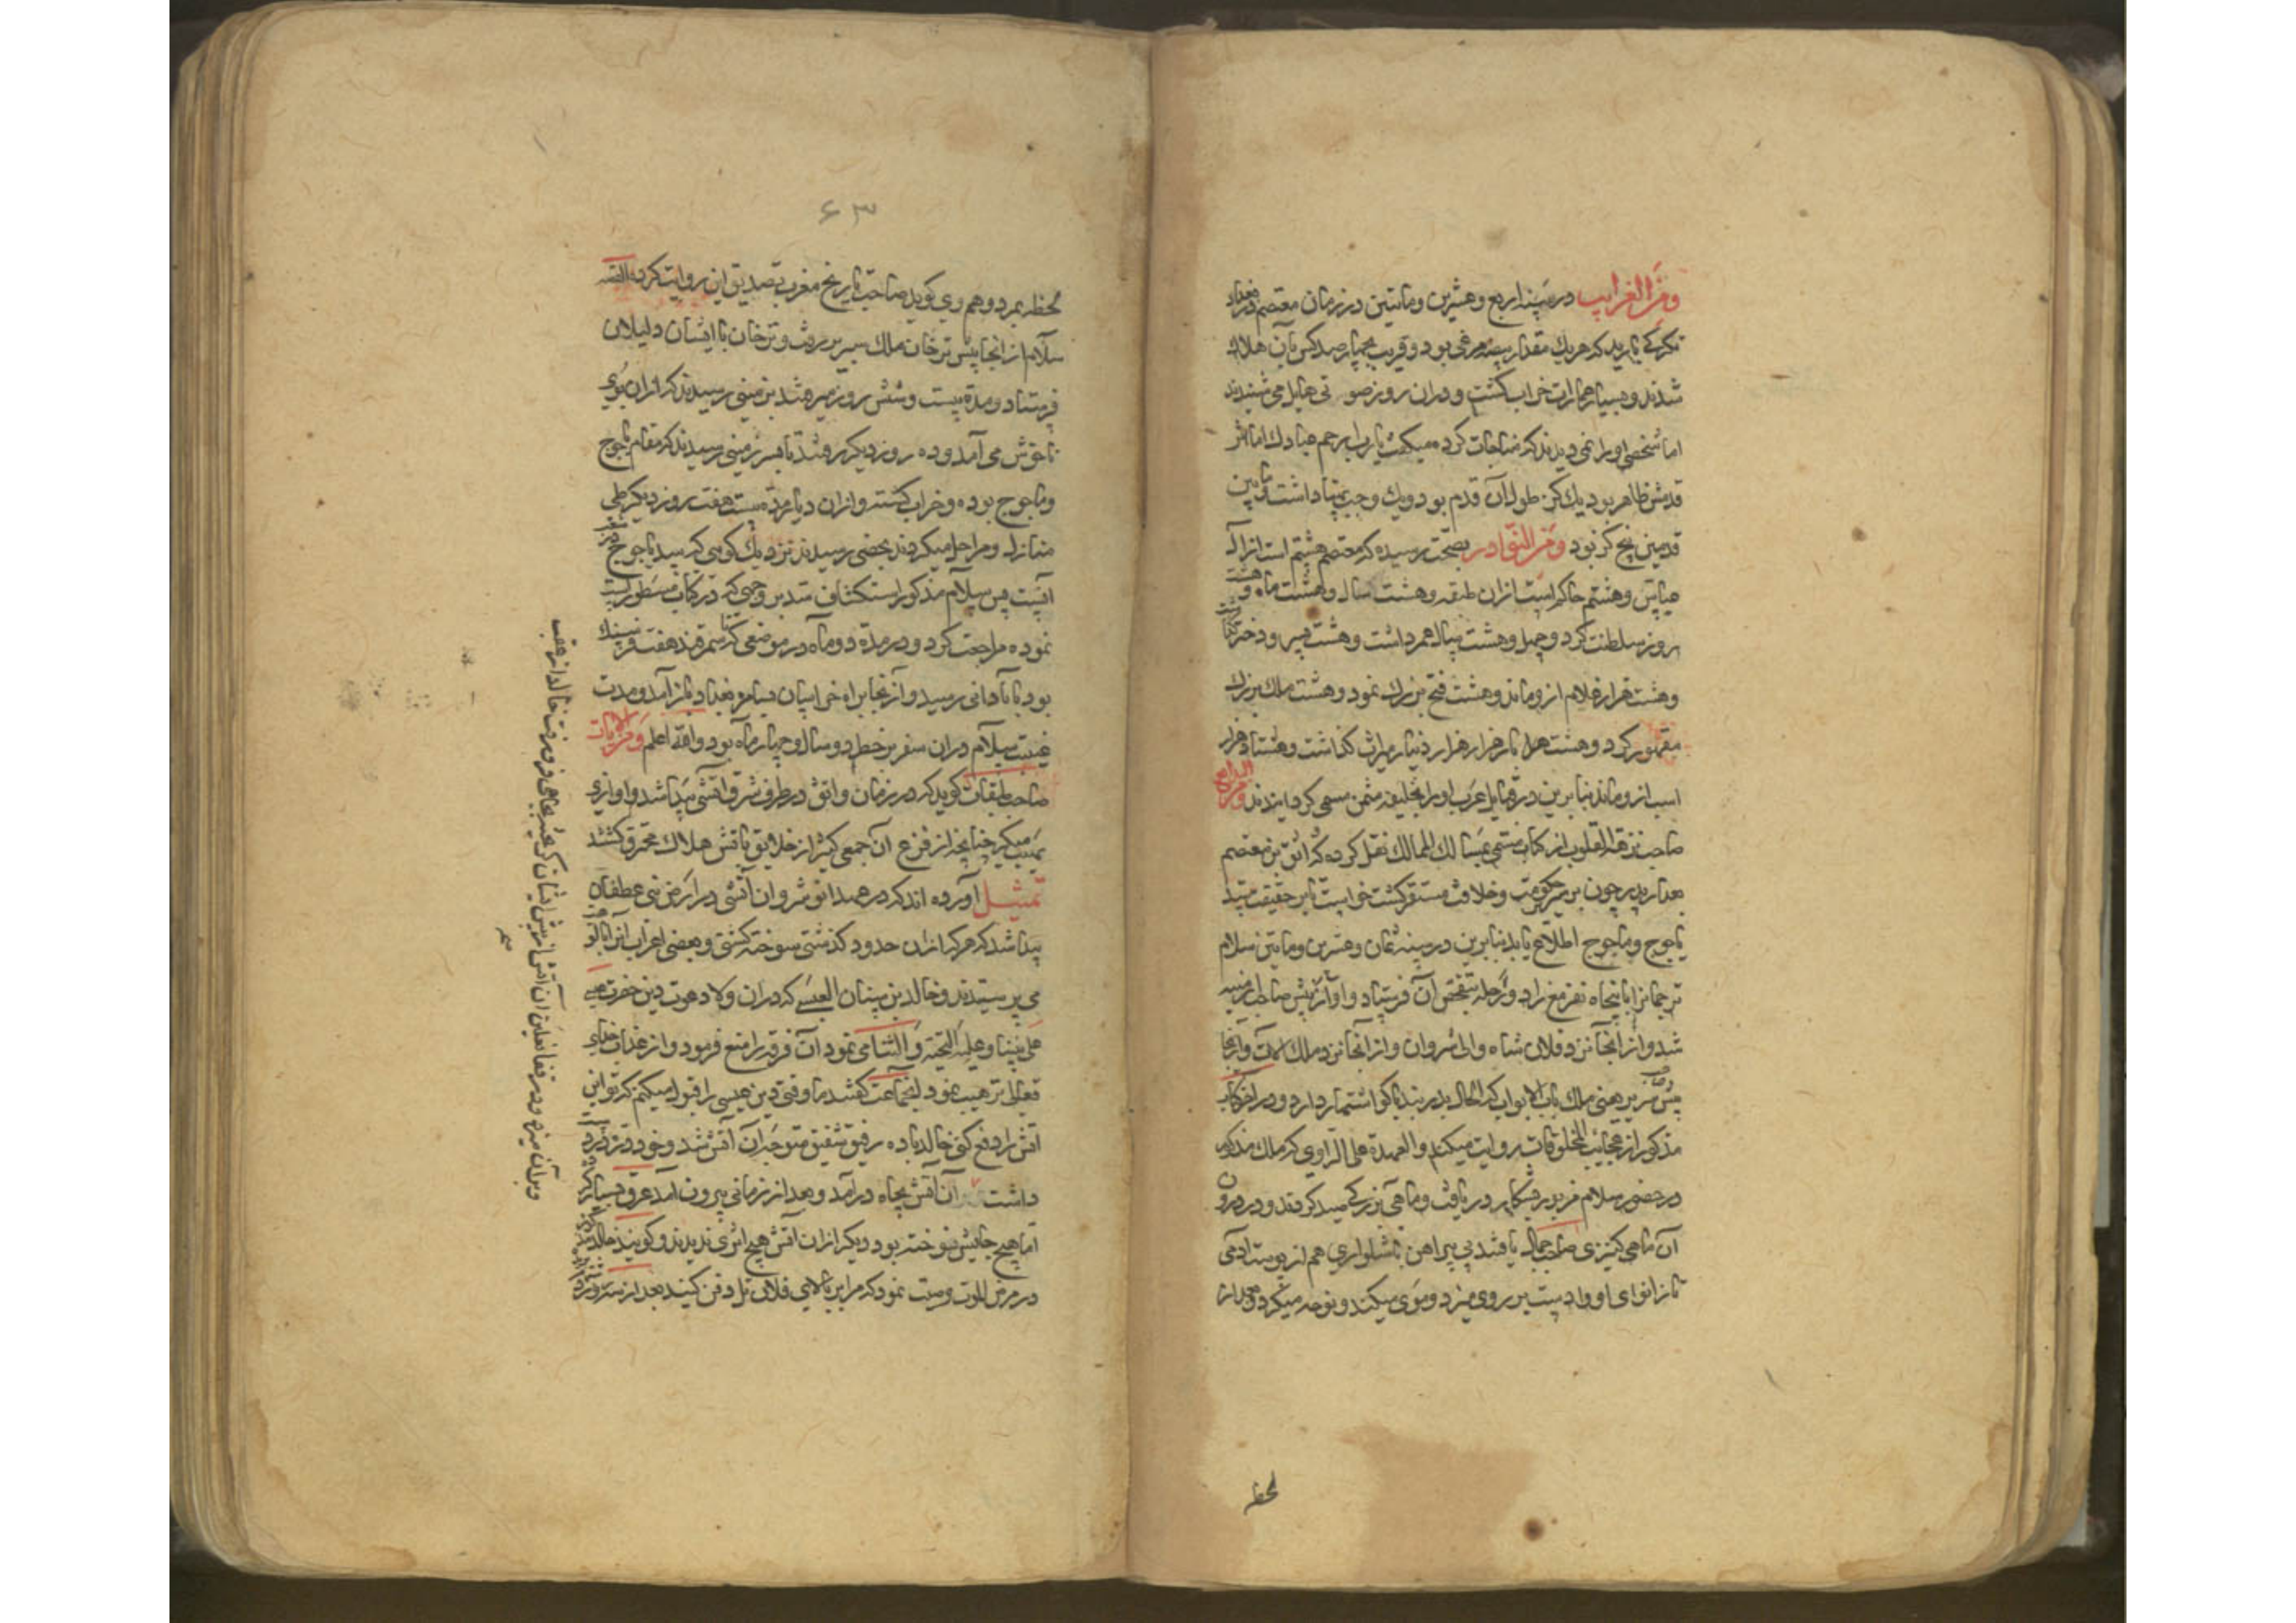 ومن الغرایب در سنه اربع وعشرین ومایتین در زمان معتصم در بغداد
تکرکی بارید که هریک مقدار بیضه مرغی بود و قریب بچهار صد کس بآن هلاک
شدند و بسیار عمارات خراب کشت و دران روز صوتی هایل می شنیدند
اما شخصی او را نمی دیدند که مناجات کرده میکفت یا رب ارحم عبادک اما اثر
قدمش ظاهر بود یک کز طول آن قدم بود و یک وجب پهنا داشت مابین
قدمین پنج کز بود ومن النوادر بصحت رسیده که معتصم هشتم است از آل
عباس و هشتم حاکم است ازان طبقه و هشت سال و هشت ماه و هشت
روز سلطنت کرد و چهل و هشت سال عمر داشت و هشت پسر و دختر
وهشت هزار غلام ازو ماند و هشت فتح بزرک نمود و هشت ملک بزرک
مقهور کرد و هشت هزار هزار دینار میراث کذاشت و هشتاد هزار
اسب ازو ماند بنا برین در قبایل عرب او را بخلیفه مثمن مسمی کردانیدند
صاحب نزهة القلوب از کتاب مسمی بمسالک الممالک نقل کرده که واثق بن معتصم
بعد از پدر چون بر سریر حکومت و خلافت مستقر کشت خواست تا بر حقیقت سد
یاجوج وماجوج اطلاع یابد بنا برین در سنه ثمان وعشرین ومایتین سلام
ترجمان را با پنجاه نفر مع زاد و راحله بتفحص آن فرستاد و او از پیش صاحب ارمنیه
شد و از آنجا نزد فلان شاه والی شروان و از آنجا نزد ملک لان و از آنجا
پیش سریر یعنی ملک باب الابواب که الحال بدربند باکو اشتهار دارد و در کتاب
مذکور از عجایب المخلوقات روایت میکند والعهدة علی الراوی که ملک مذکور
در حضور سلام فرید بر شکار دریا رفت و ماهی بزرکی صید کردند و در درون
آن ماهی کنیزی صاحب جمال یافتند بی پیراهن با شلواری هم از پوست ادمی
تا زانوای او و او دست بر روی میزد و موی میکند و نوحه میکرد و بعد از
لحظه
۶۳
لحظه بمرد و هم وی کوید صاحب تاریخ مغرب تصدیق این روایت کرده القصه
سلام از آنجا پیش ترخان ملک سریر رفت و ترخان با ایشان دلیلان
فرستاد و مدة بیست و شش روز میرفتند بزمینی رسیدند که ازان بوی
ناخوش می آمد و ده روز دیکر برفتند تا بسر زمینی رسیدند که مقام یاجوج
وماجوج بوده و خراب کشته و ازان دیار مدة بیست هفت روز دیکر طی
منازل و مراحل میکردند بحضنی رسیدند نزدیک کوهی که سد یاجوج دران
آنست پس سلام مذکور استکشاف سد بر وجهی که در کتاب مسطور است
نموده مراجعت کرد و در مدة دو ماه در موضعی که تا سمرقند هفت فرسنک
بود بآبادانی رسید و از آنجا براه خراسان بسامره بغداد باز آمد و مدت
غیبت سلام دران سفر پر خطر دو سال و چهار ماه بود والله اعلم ومن الآیات
صاحب طبقات کوید که در زمان واثق در طرف شرق آتشی پیدا شد و اوازی
مهیب میکرد چنانچه از فزع آن جمعی کثیر از خلایق بآتش هلاک محترق کشتند
تمثیل آورده اند که در عهد انوشروان آتشی در ارض بنی عطفان
پیدا شد که هرکه ازان حدود کذشتی سوخته کشتی و بعضی اعراب انرا
می پرستیدند و خالد بن سنان العبسی که دران ولا دعوت دین حضرت عیسی
علی نبینا وعلیه التحیة والسلام می نمود آن فرقه را منع فرمود و از عذاب خدای
تعالی ترهیب نمود آن جماعت کفتند ما وقتی دین عیسی را قبول میکنیم که تو این
آتش را دفع کنی خالد با ده رفیق شفیق متوجه آن آتش شد و خود
داشت آن آتش بچاه درآمد و بعد از زمانی بیرون آمد عرق بسیار کرده
اما هیچ جایش نسوخته بود دیکر ازان آتش هیچ اثری ندیدند و کویند خالد
در مرض الموت وصیت نمود که مرا بر بالای فلان تل دفن کنید بعد از سه روز
وبر آن میزد و میرفت تا نعلین آن آتش از پیش ایشان کریخته بچاهی فرو رفت خالد از عقب